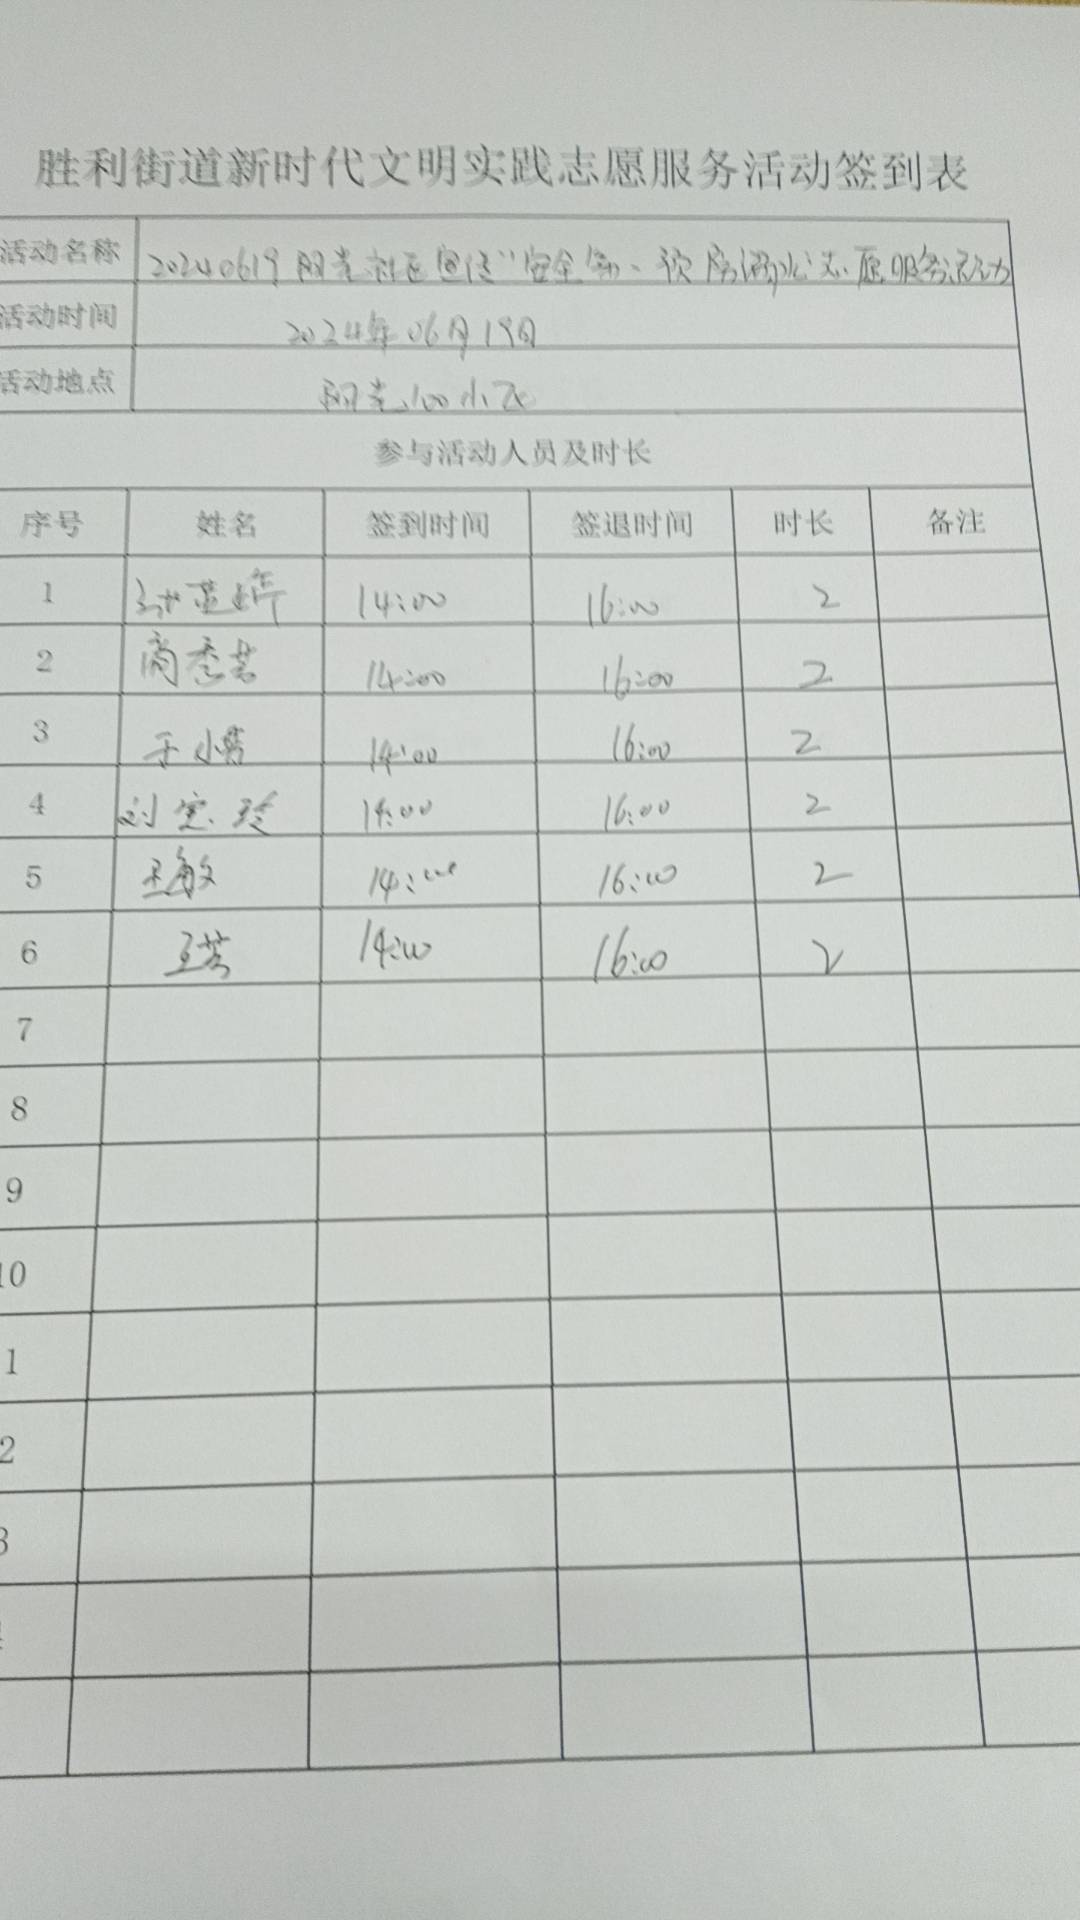 胜利街道新时代文明实践志愿服务活动签到表
活动名称 20240619阳光社区宣传“安全 预防溺水志愿服务活动
活动时间 2024年06月19日
活动地点 阳光100小区
参与活动人员及时长
序号 姓名 签到时间 签退时间 时长 备注
1 14:00 16:00 2
2 14:00 16:00 2
3 于小 14:00 16:00 2
4 刘宝玲 14:00 16:00 2
5 王敏 14:00 16:00 2
6 王芳 14:00 16:00 2
7
8
9
10
1
2
3